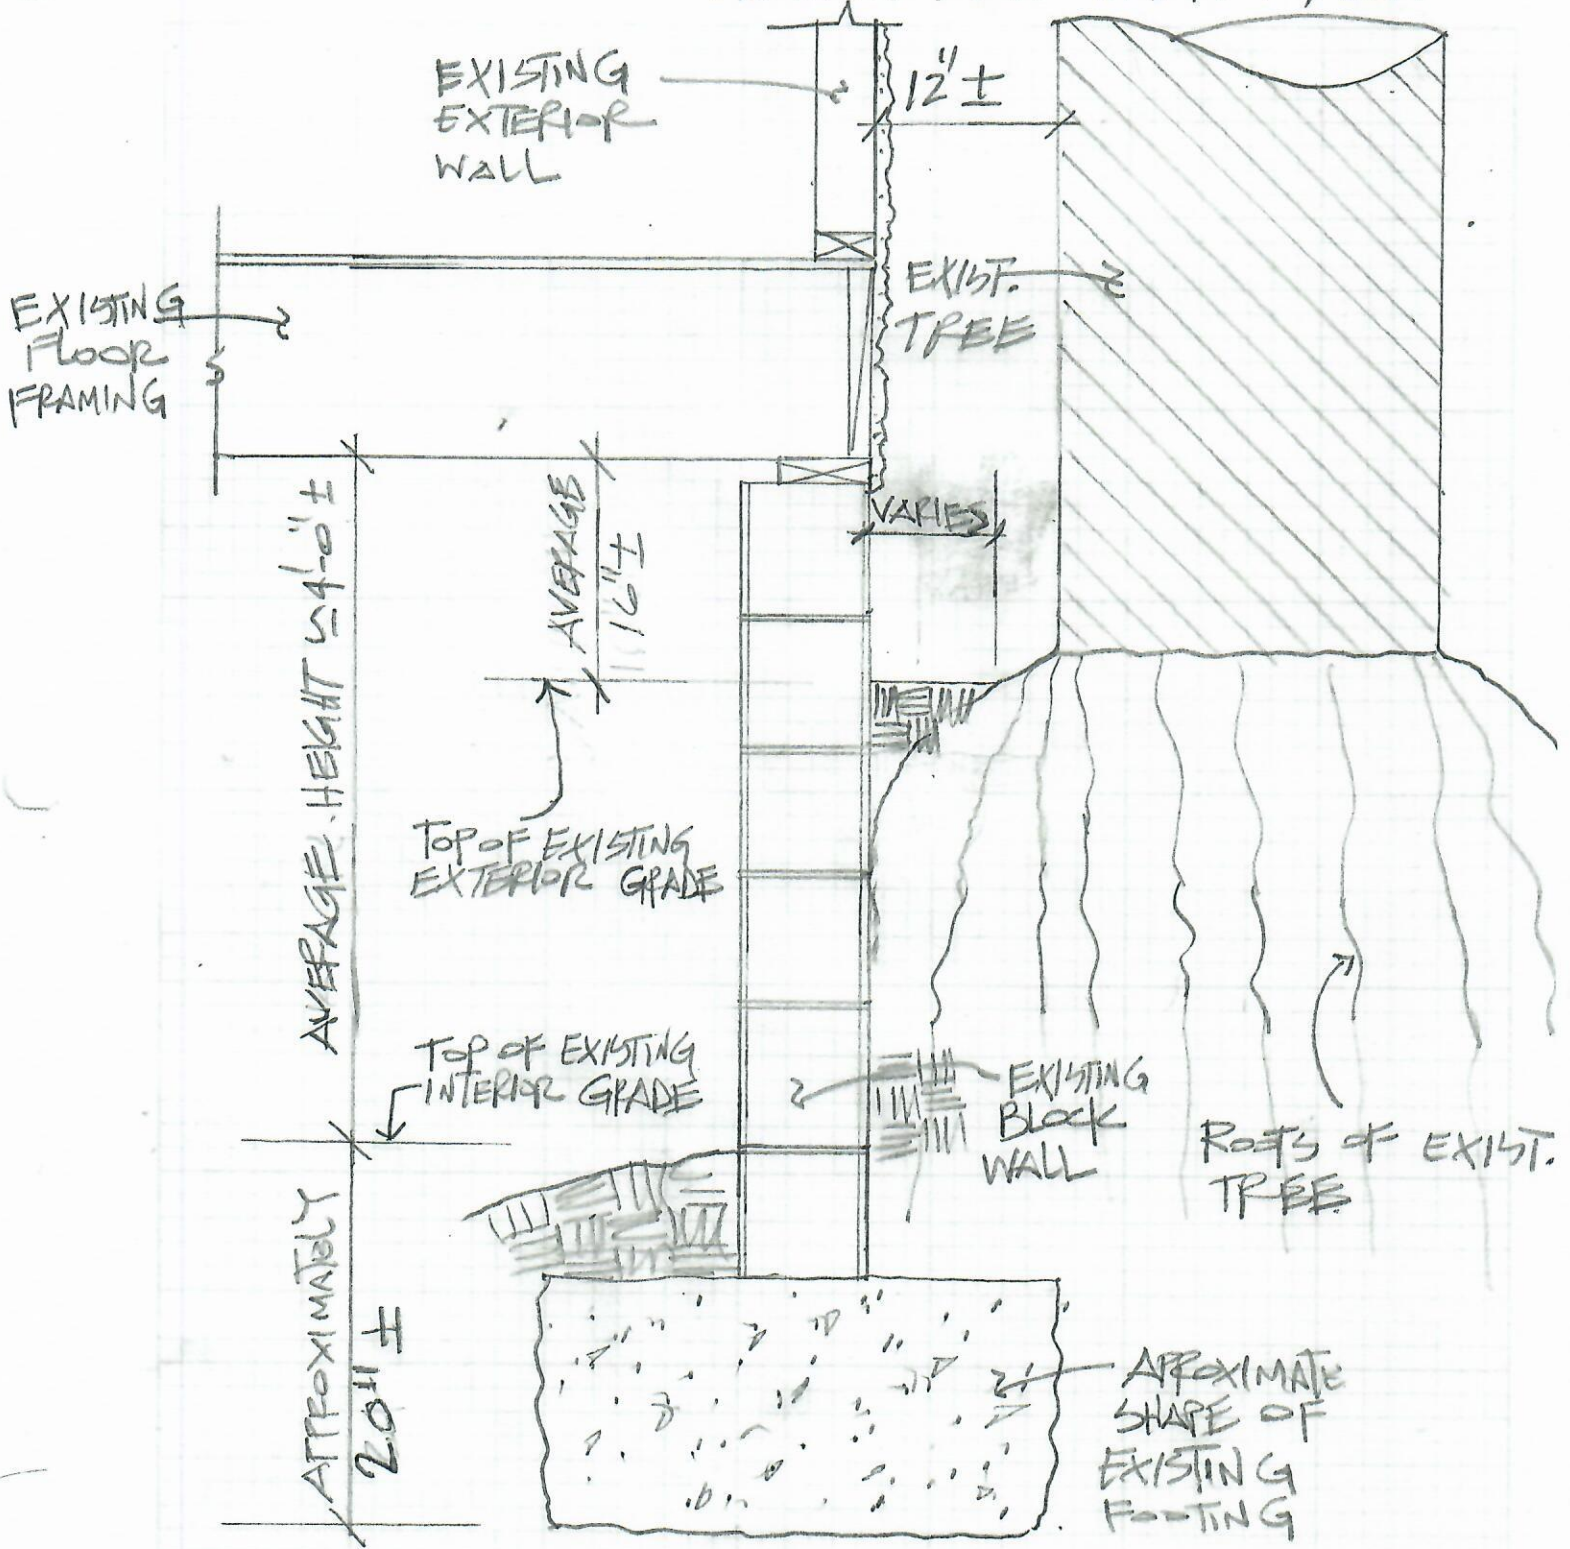 EXISTING
EXTERIOR
WALL
12"±
EXISTING
FLOOR
FRAMING
EXIST.
TREE
AVERAGE HEIGHT ≤ 4'-0" ±
AVERAGE
16"±
VARIES
TOP OF EXISTING
EXTERIOR GRADE
TOP OF EXISTING
INTERIOR GRADE
EXISTING
BLOCK
WALL
ROOTS OF EXIST.
TREE
APPROXIMATELY
20" ±
APROXIMATE
SHAPE OF
EXISTING
FOOTING